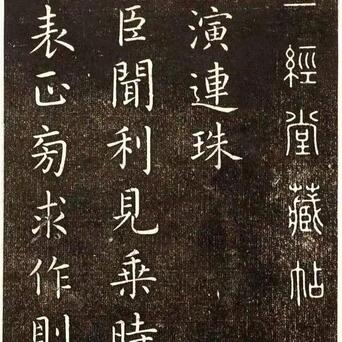 一經堂藏帖
演連珠
臣聞利見乘時
表正旁求作則